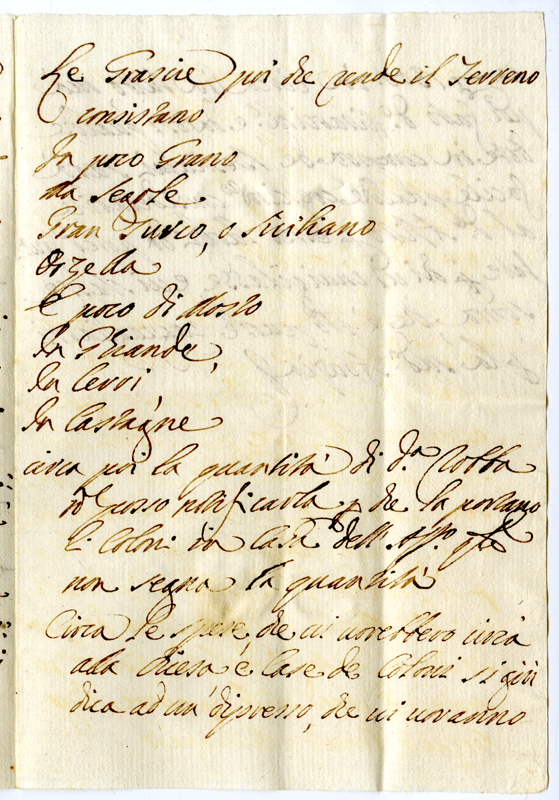 Le Grascie poi che rende il Terreno
consistano
In poco Grano
ma Segole
Gran Turco, o Siciliano
Orzella
E poco di Mosto
In Ghiande,
In Cerri,
In Castagne
circa poi la quantità di d.ª Robba
nõ posso notificarla p che la portano
li Coloni in Casa dell' App.
non segna la quantità
Circa le spese che ui uorebbero circa
alla Chiesa è Case de Coloni si giu
dica ad un' dipresso, che ui uoranno